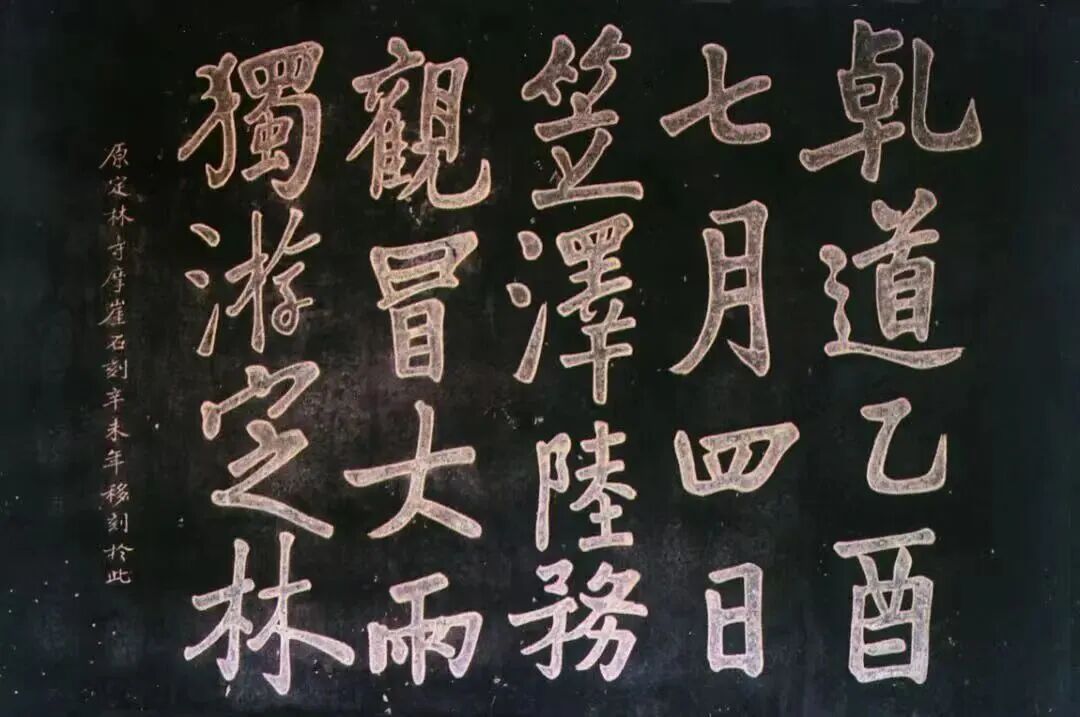 乹道乙酉
七月四日
笠澤陸務
觀冒大雨
獨游定林
原定林寺摩崖石刻辛未年移刻於此